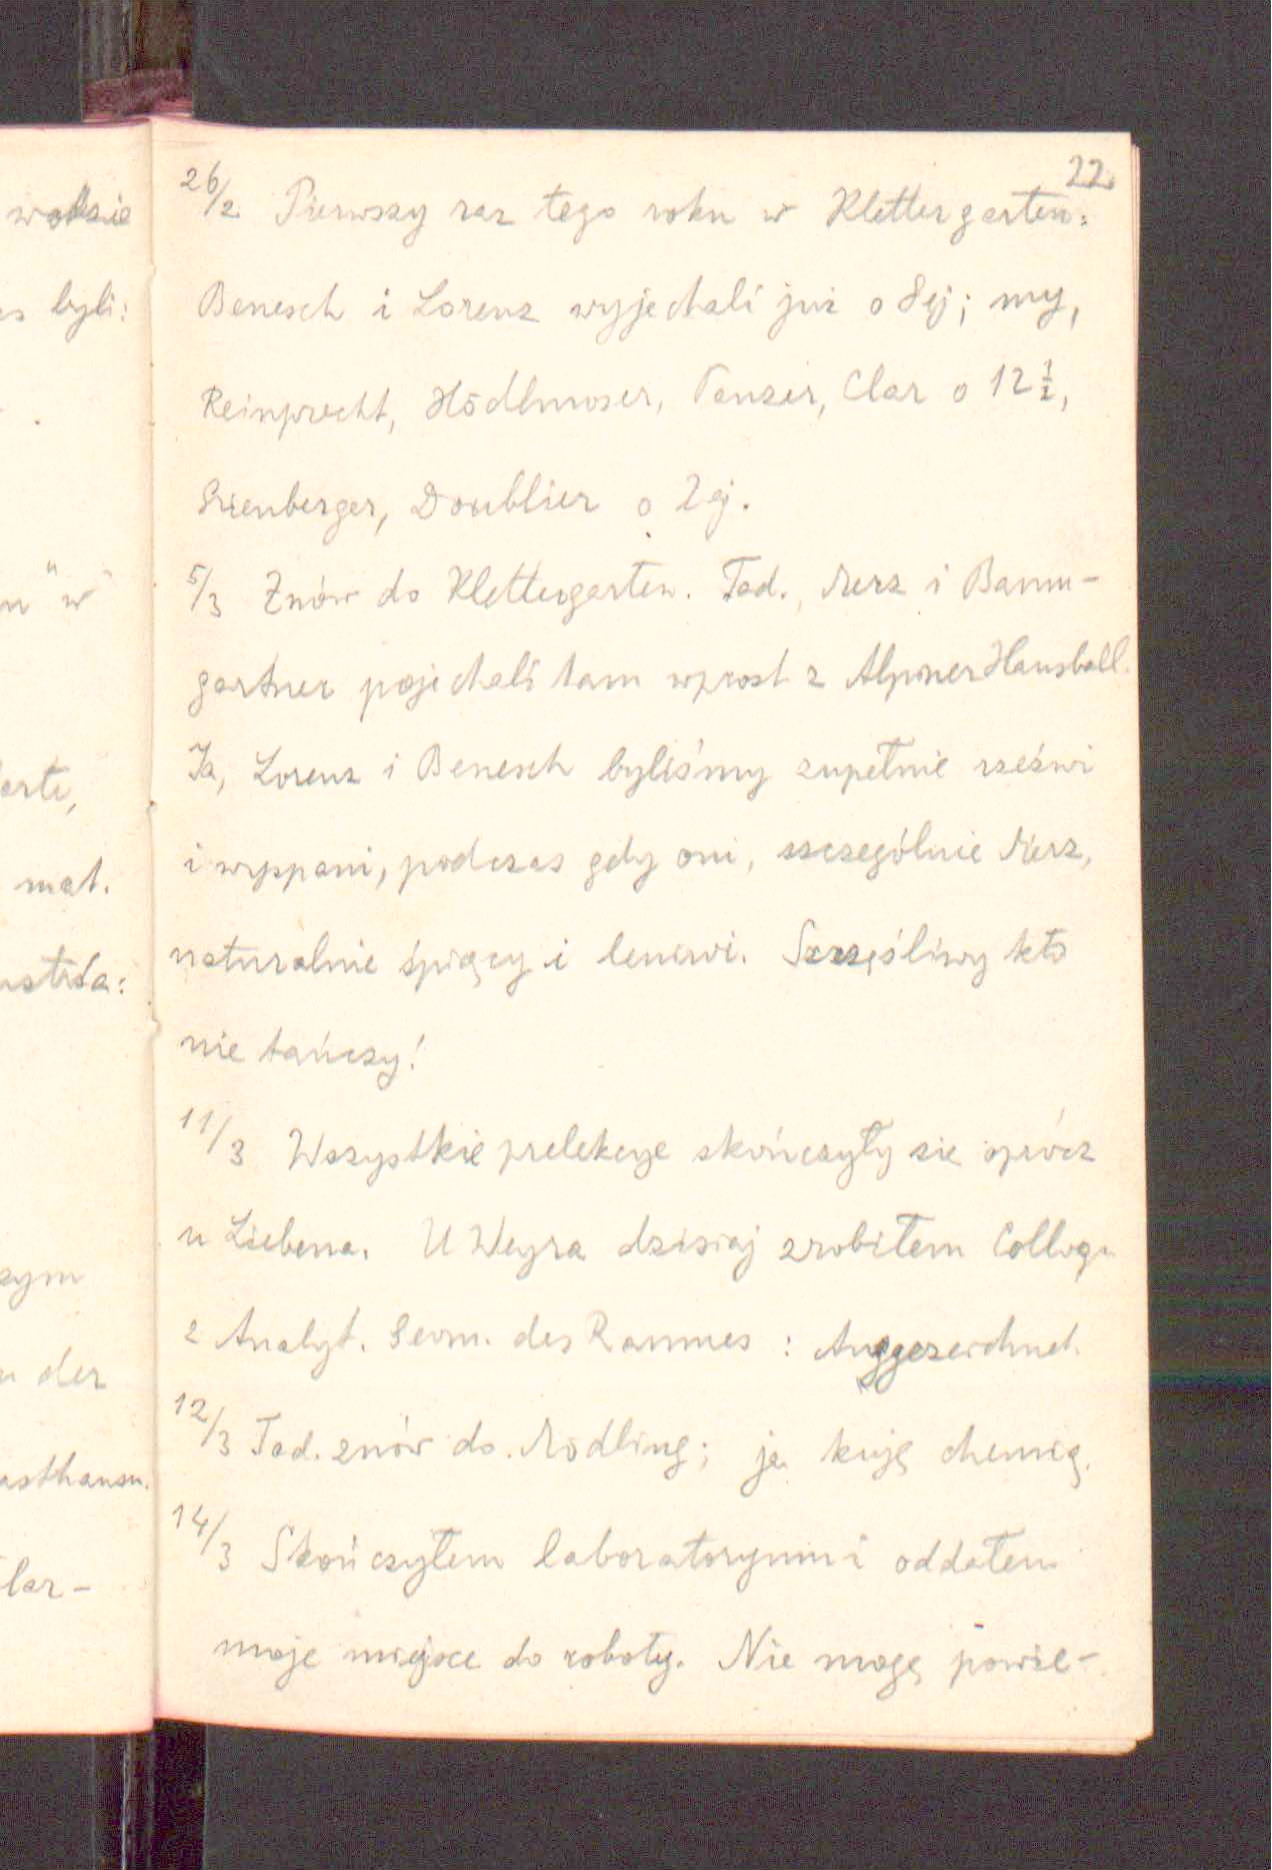 22.
26/2 Pierwszy raz tego roku w Klettergarten.
Benesch i Lorenz wyjechali już o 8ej; my,
Reinprecht, Hödlmoser, Panzer, Clar o 12 1/2,
Grienberger, Doublier o 2ej.
5/3 Znów do Klettergarten. Tad., Merz i Baum-
gartner pojechali tam wprost z Alpiner Hausball.
Ja, Lorenz i Benesch byliśmy zupełnie rześwi
i wyspani, podczas gdy oni, szczególnie Merz,
naturalnie śpiący i leniwi. Szczęśliwy kto
nie tańczy!
11/3 Wszystkie prelekcye skończyły sie oprócz
u Liebena. U Weyra dzisiaj zrobiłem Colloqu
z Analyt. Geom. des Raumes: Ausgezeichnet.
12/3 Tad. znów do Mödling; ja kuję chemię.
14/3 Skończyłem laboratoryum i oddałem
moje miejsce do roboty. Nie mogę powie-
byli:
"w
mat.
der